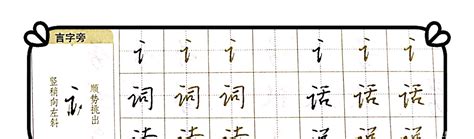 言字旁
竖稍向左斜
讠
顺势挑出
讠 讠 讠 讠 讠 讠
词 词 词 话 话 话